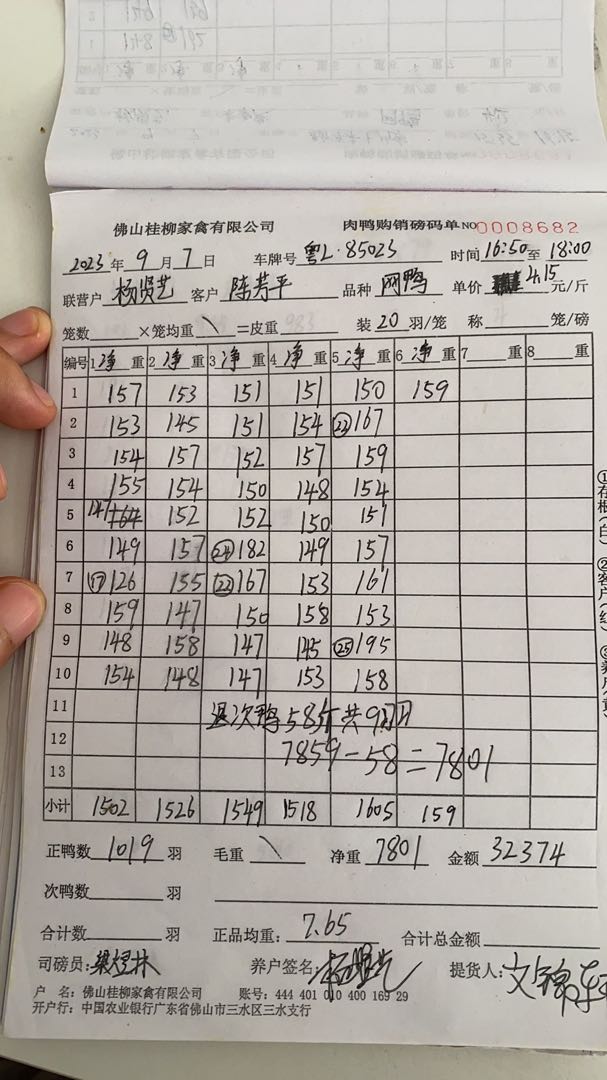 佛山桂柳家禽有限公司 肉鸭购销磅码单 NO 0008682
2023年9月7日 车牌号 粤L·85023 时间 16:50 至 18:00
联营户 杨贤艺 客户 陈芳平 品种 网鸭 单价 4.15 元/斤
笼数 ×笼均重 \ =皮重 装 20 羽/笼 称 笼/磅
编号 1 净 重 2 净 重 3 净 重 4 净 重 5 净 重 6 净 重 7 重 8 重
1 157 153 151 151 150 159
2 153 145 151 154 ㉒167
3 154 157 152 157 159
4 155 154 150 148 154
5 147 164 152 152 150 151
6 149 157 ㉔182 149 157
7 ⑰126 155 ㉒167 153 161
8 159 147 150 158 153
9 148 158 147 145 ㉕195
10 154 148 147 153 158
11 退次鸭58斤共9
12 7859-58=7801
13
小计 1502 1526 1549 1518 1605 159
正鸭数 1019 羽 毛重 \ 净重 7801 金额 32374
次鸭数 羽
合计数 羽 正品均重: 7.65 合计总金额
司磅员: 梁煜林 养户签名: 提货人:
户 名: 佛山桂柳家禽有限公司 账号: 444 401 010 400 169 29
开户行: 中国农业银行广东省佛山市三水区三水支行
①存根(白) ②客户(红)